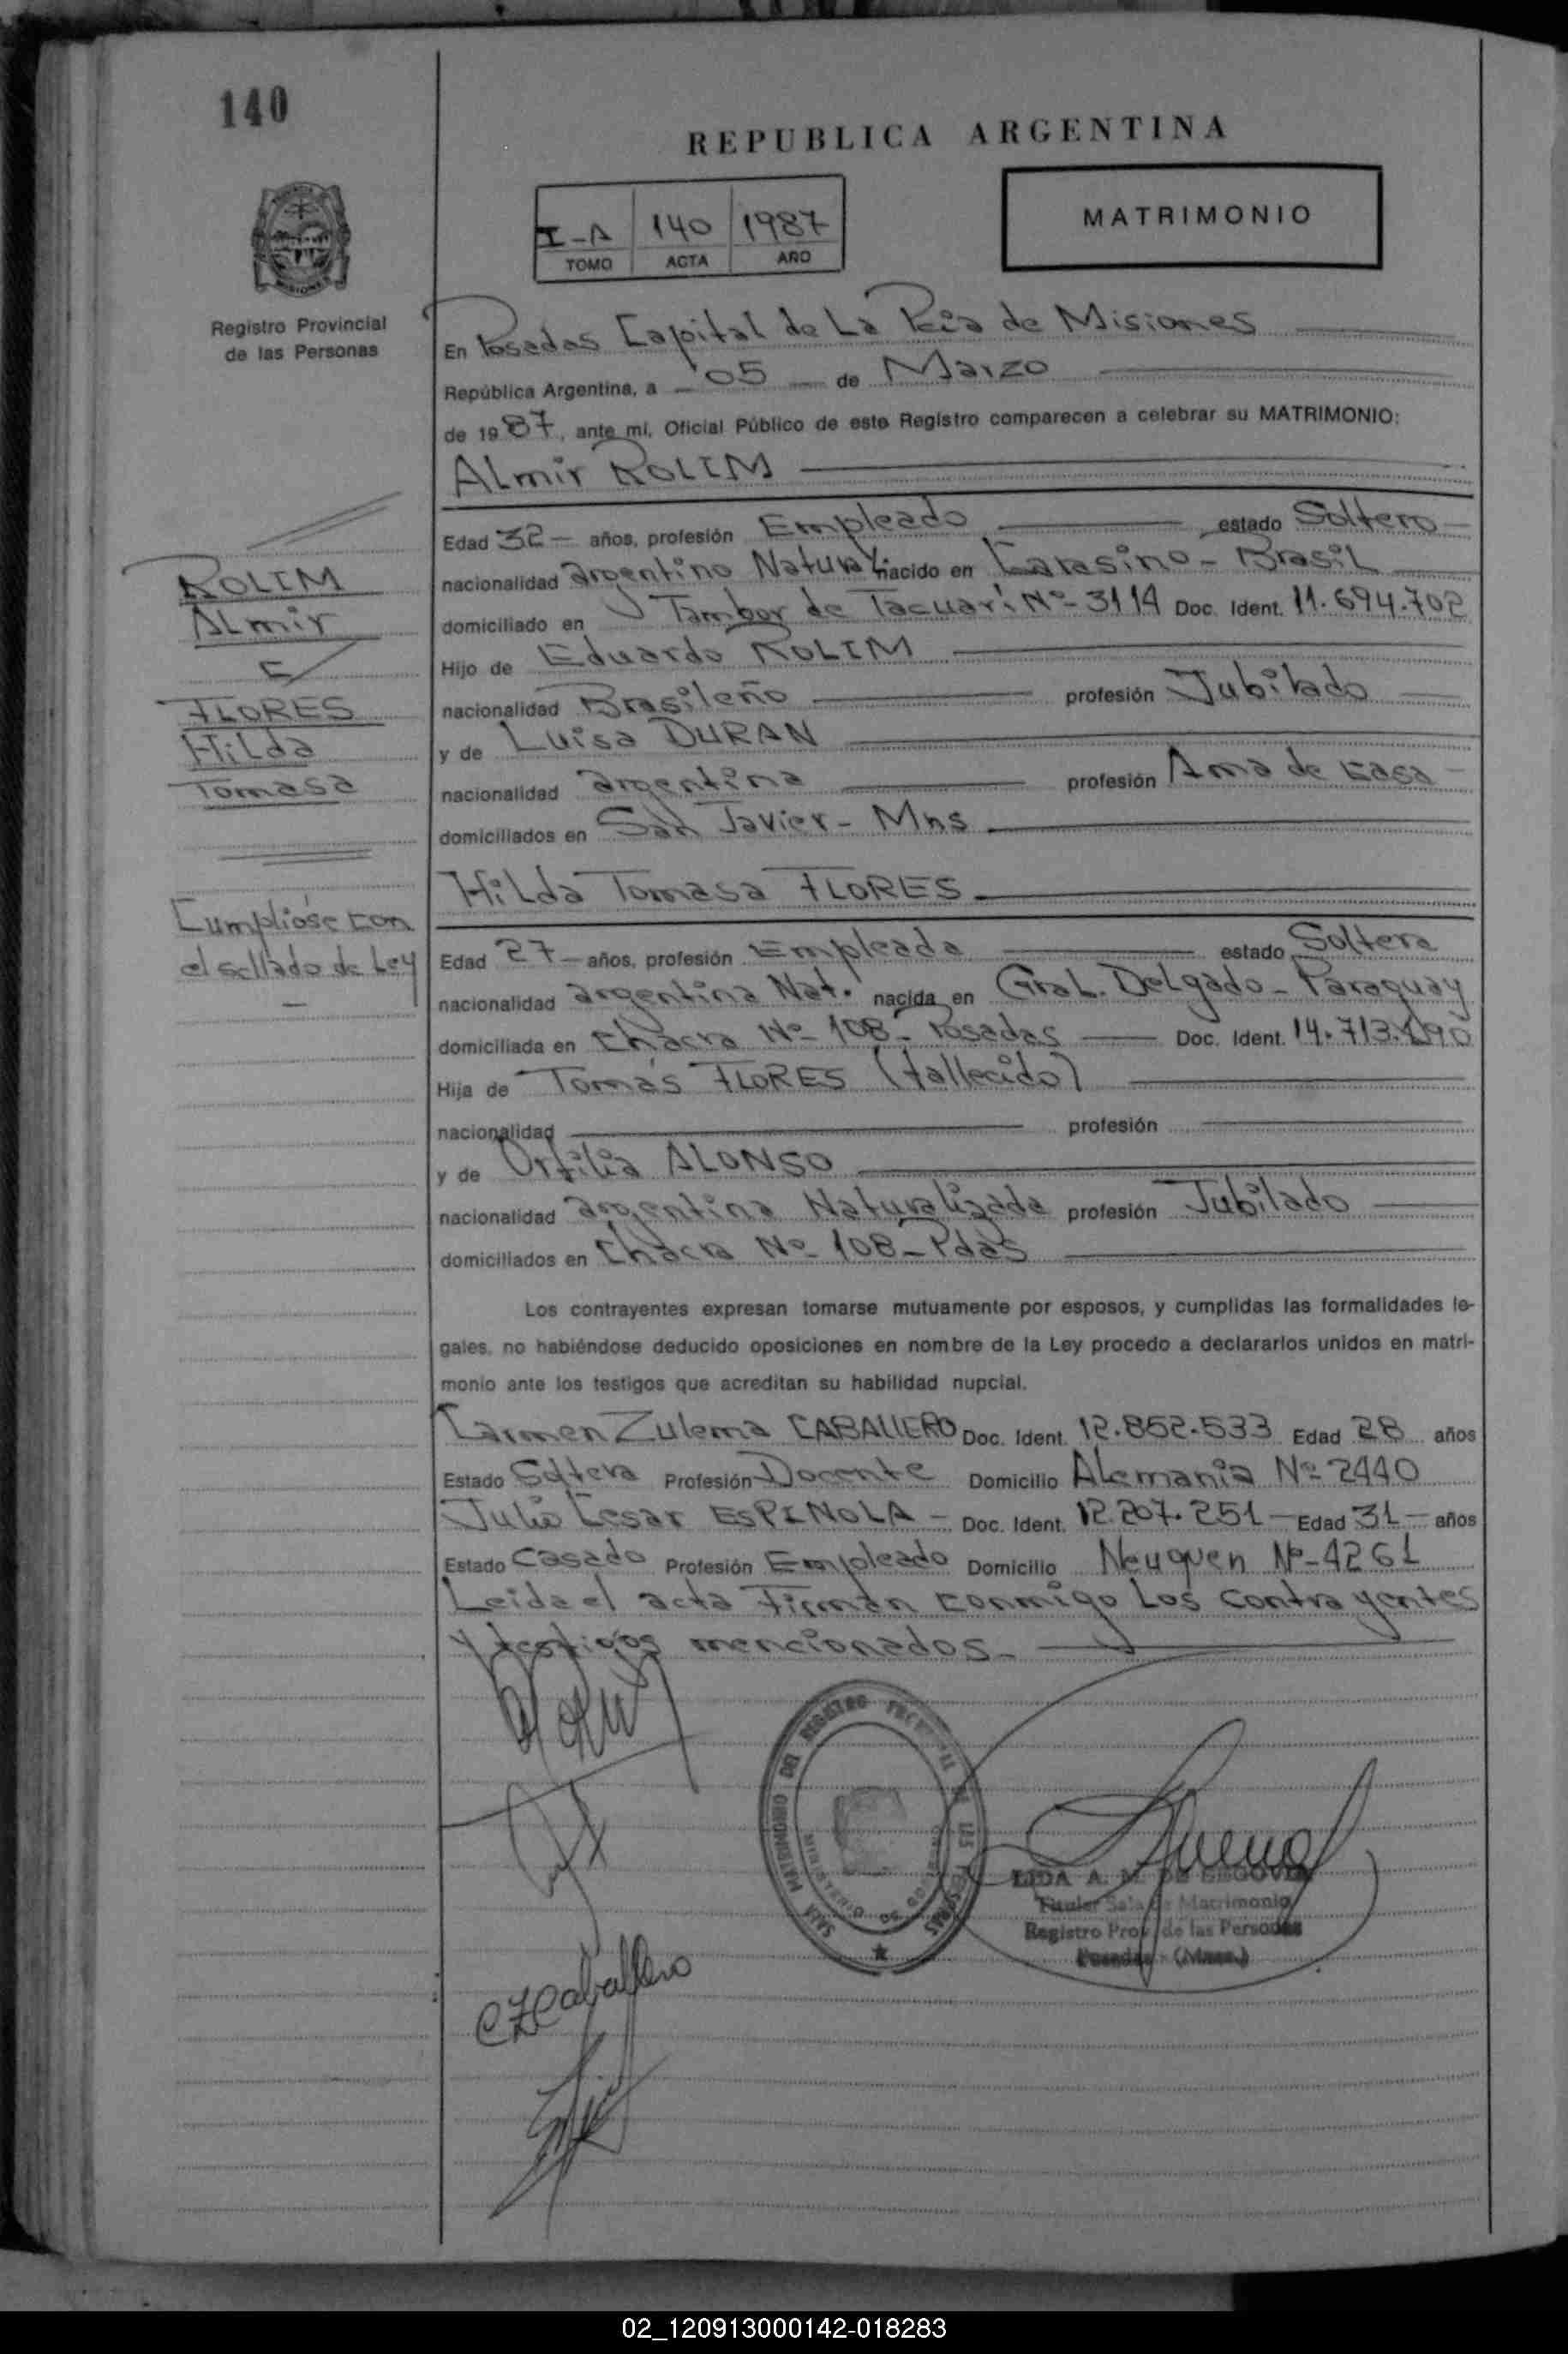 140
REPUBLICA ARGENTINA
I-A 140 1987
TOMO ACTA AÑO
MATRIMONIO
MISIONES
Registro Provincial
de las Personas
En Posadas Capital de La Pcia de Misiones
República Argentina, a 05 de Marzo
de 1987, ante mi, Oficial Público de este Registro comparecen a celebrar su MATRIMONIO:
Almir ROLIM
Edad 32 años, profesión Empleado estado Soltero
nacionalidad argentino Natural nacido en - Brasil
domiciliado en Tambor de Tacuarí Nº 3114 Doc. Ident. 11.694.702
Hijo de Eduardo ROLIM
nacionalidad Brasileño profesión Jubilado
y de Luisa DURAN
nacionalidad argentina profesión Ama de casa
domiciliados en San Javier - Mns
ROLIM
Almir
C/
FLORES
Hilda
Tomasa
Cumplióse con
el sellado de Ley
Hilda Tomasa FLORES
Edad 27 años, profesión Empleada estado Soltera
nacionalidad argentina Nat. nacida en Gral. Delgado - Paraguay
domiciliada en Chacra Nº 108 - Posadas Doc. Ident. 14.713.
Hija de Tomás FLORES (fallecido)
nacionalidad profesión
y de Orfilia ALONSO
nacionalidad argentina Naturalizada profesión Jubilado
domiciliados en Chacra Nº 108 - Pdas
Los contrayentes expresan tomarse mutuamente por esposos, y cumplidas las formalidades le-
gales, no habiéndose deducido oposiciones en nombre de la Ley procedo a declararlos unidos en matri-
monio ante los testigos que acreditan su habilidad nupcial.
Carmen Zulema CABALLERO Doc. Ident. 12.852.533 Edad 28 años
Estado Soltera Profesión Docente Domicilio Alemania Nº 2440
Julio Cesar ESPINOLA - Doc. Ident. 12.207.251 - Edad 31 - años
Estado Casado Profesión Empleado Domicilio Neuquen Nº 4261
Leida el acta Firman conmigo Los contrayentes
y testigos mencionados.
SALA MATRIMONIO DEL REGISTRO PROVINCIAL DE LAS PERSONAS
LIDA A. M. DE SEGOVIA
Titular Sala de Matrimonio
Registro Prov. de las Personas
Posadas - (Mnes.)
CZCaballero
02_120913000142-018283